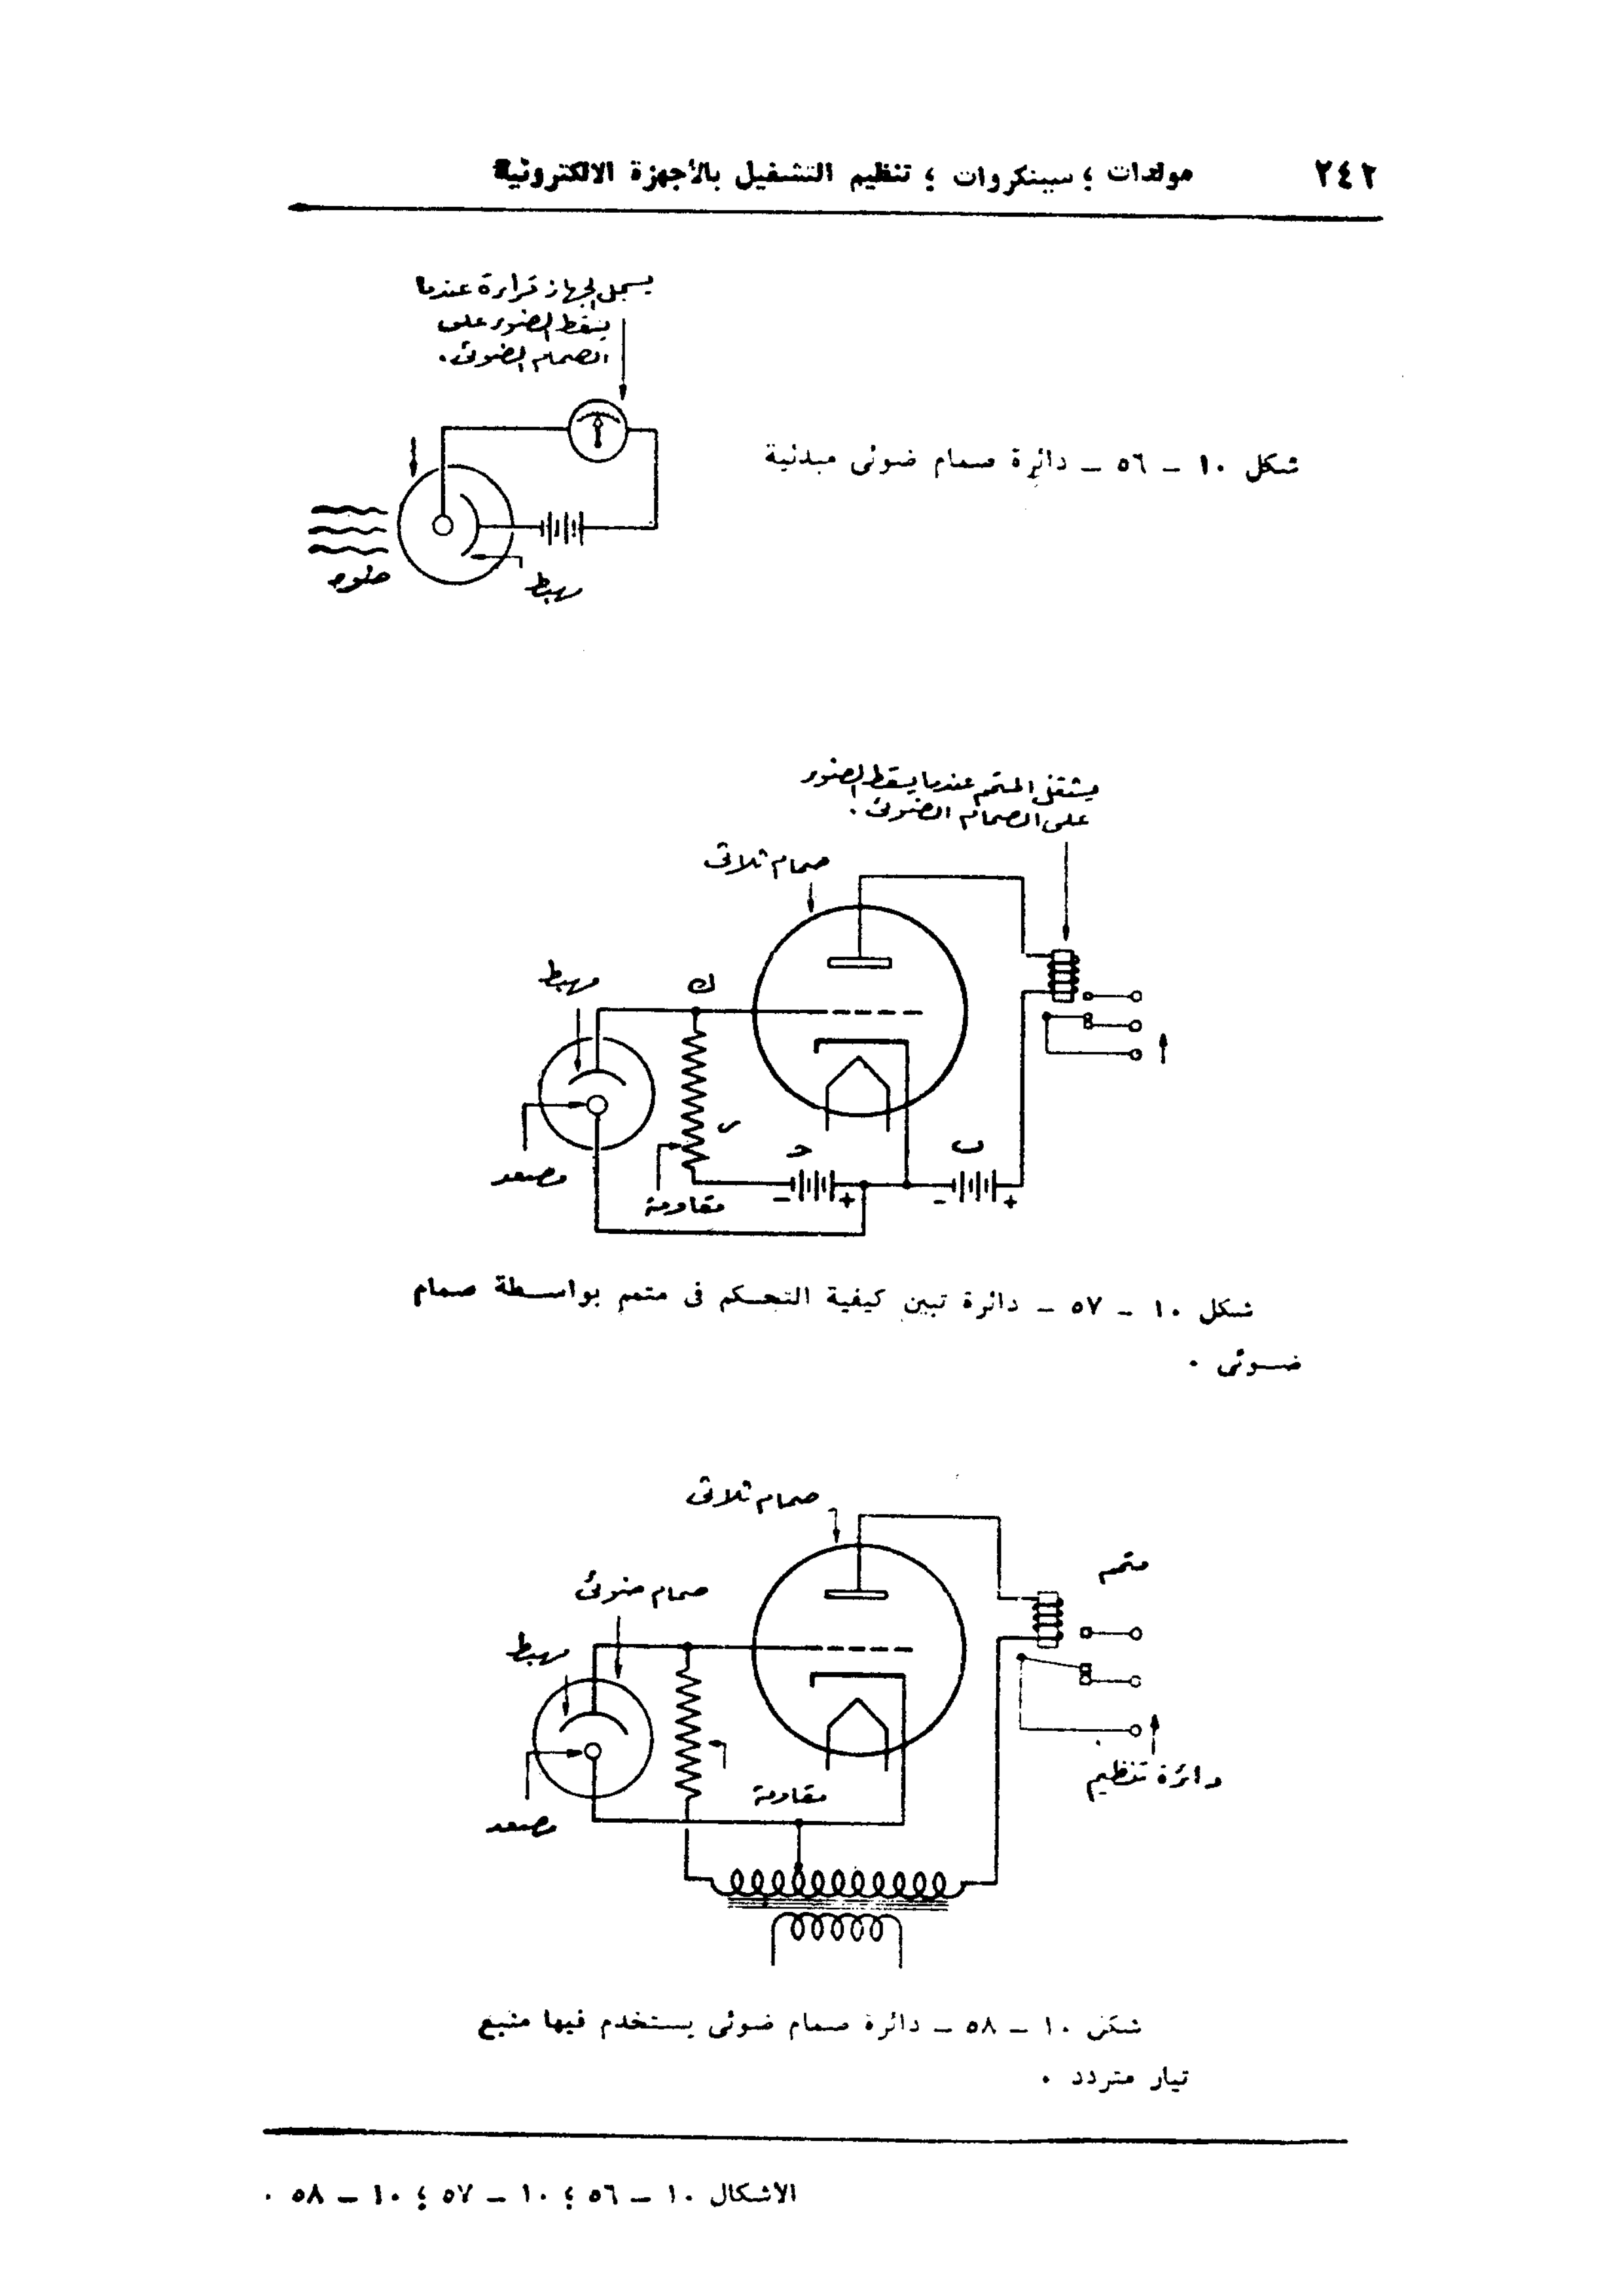 ٢٤٢ مولدات ؛ سينكروات ؛ تنظيم التشغيل بالأجهزة الالكترونية
يسجل الجهاز قراءة عندما
يسقط الضوء على
الصمام الضوئى .
ضوء
مهبط
شكل ١٠ – ٥٦ – دائرة صمام ضوئى مبدئية
يشتغل المتمم عندما يسقط الضوء
على الصمام الضوئى .
صمام ثلاثى
مهبط
ك
مصعد
مقاومة
ر
ح
ب
– +
– +
شكل ١٠ – ٥٧ – دائرة تبين كيفية التحكم فى متمم بواسطة صمام
ضوئى .
صمام ثلاثى
صمام ضوئى
مهبط
مصعد
مقاومة
متمم
دائرة تنظيم
شكل ١٠ – ٥٨ – دائرة صمام ضوئى يستخدم فيها منبع
تيار متردد .
الأشكال ١٠ – ٥٦ ؛ ١٠ – ٥٧ ؛ ١٠ – ٥٨ .